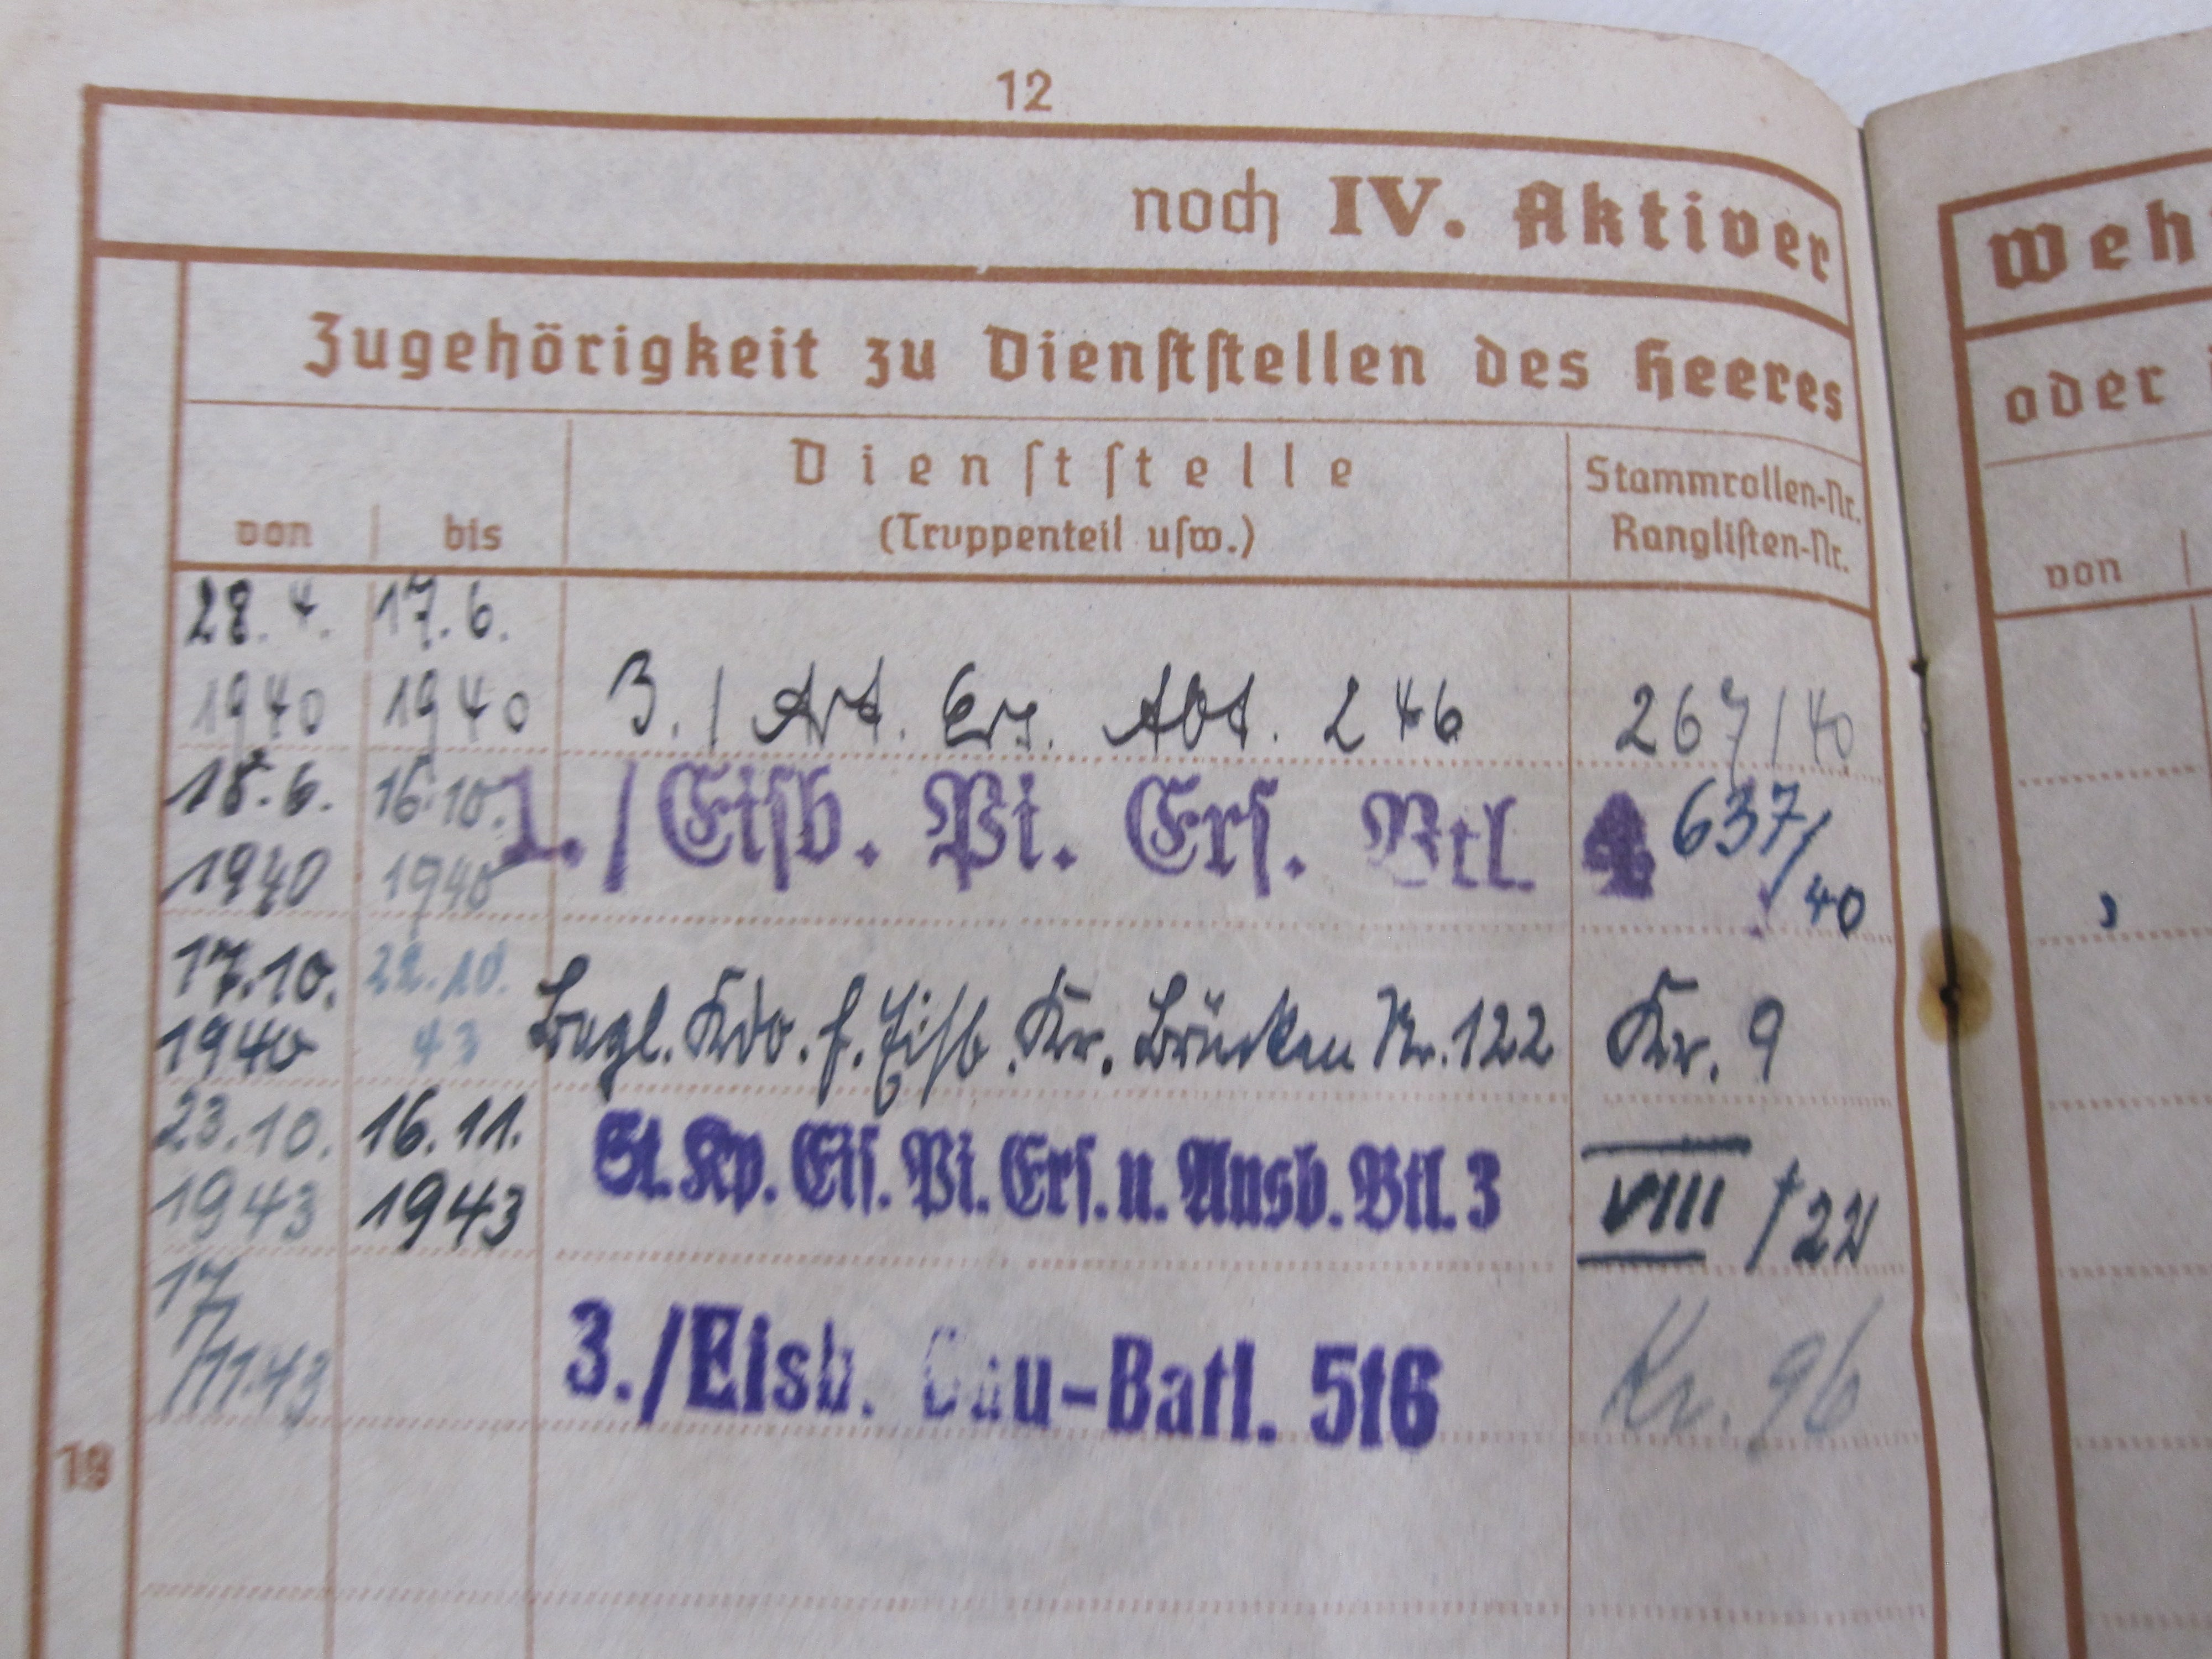 12
noch IV. Aktiver
Zugehörigkeit zu Dienststellen des Heeres
von bis Dienststelle (Truppenteil usw.) Stammrollen-Nr. Ranglisten-Nr.
28.4. 17.6.
1940 1940 3./ Art. Ers. Abt. 246 267/40
18.6. 16.10. 1./Eisb. Pi. Ers. Btl. 4 637/
1940 1940 40
17.10. 22.10.
1940 43 Begl. Kdo. f. Eisb. Kr. Brücken Nr. 122 Kr. 9
23.10. 16.11. St. Kp. Eis. Pi. Ers. u. Ausb. Btl. 3 VIII /22
1943 1943
17
/11.43 3./Eisb. Bau-Batl. 516 Kr. 96
19
Weh
oder
von